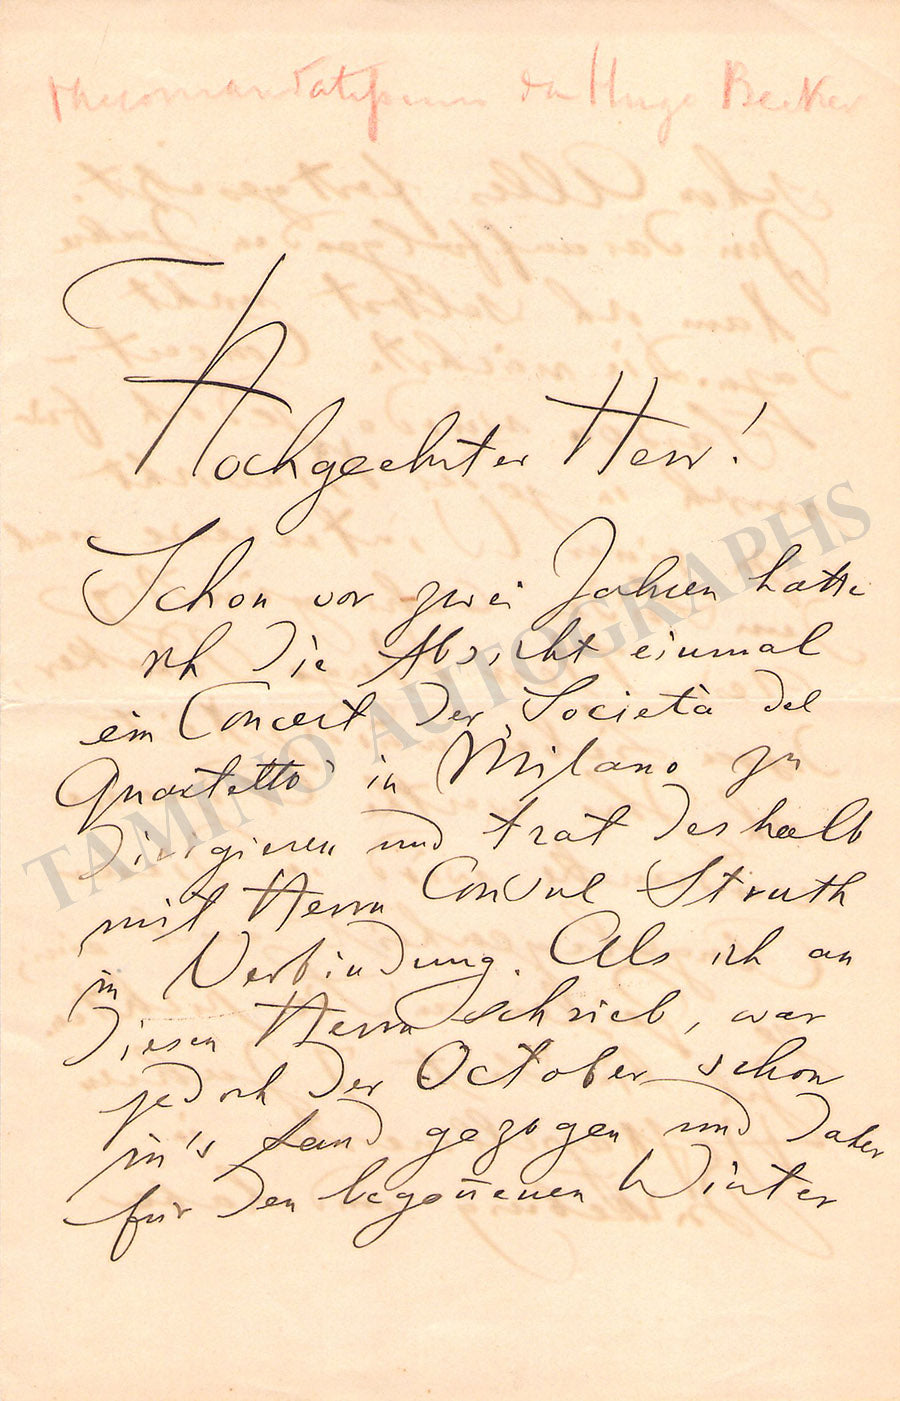 da Hugo Becker
Hochgeehrter Herr!
Schon vor zwei Jahren hatte
ich die Absicht einmal
ein Concert der „Società del
Quartetto“ in Milano zu
dirigieren und trat deshalb
mit Herrn Consul Struth
in Verbindung. Als ich an
diesen Herrn schrieb, war
jedoch der October schon
in's Land gezogen und daher
für den begon̄enen Winter
TAMINO AUTOGRAPHS